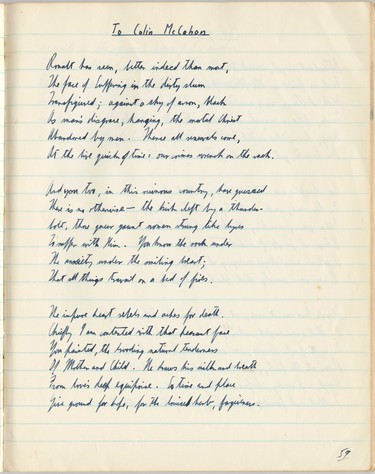 To Colin McCahon
Rouault has seen, better indeed than most,
The face of Suffering in the dirty slum
Transfigured; against a sky of iron, black
As man's disgrace, hanging, the mortal Christ
Abandoned by men. Thence all renewals come,
At the live quick of time: our vines on the rock.
And you too, in this ruinous country, have guessed
There is no otherwise — the hush cleft by a thunder-
bolt, those gaunt women strung like lyres
To suffer with Him. You know the rock under
The anxiety under the smiling heart;
That all things travail on a bed of fires.
The impure heart rebels and aches for death.
Chiefly I am contented with that peasant face
You painted, the brooding natural tenderness
Of Mother and Child. He draws his milk and breath
From love's deep equipoise. So time and place
Give ground for hope, for the bruised herb, forgiveness.
59